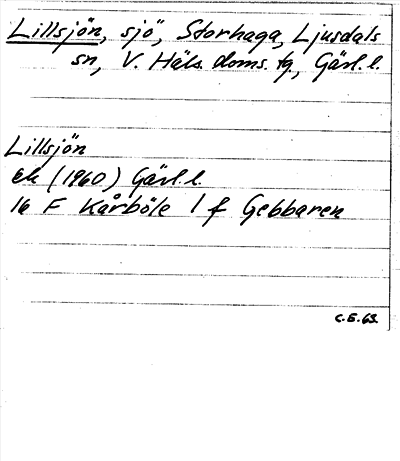 Lillsjön, sjö, Storhaga, Ljusdals
sn, V. Häls. doms. tg., Gävl. l.
Lillsjön
ek (1960) Gävl. l.
16 F Kårböle 1 f Gebbaren
C.E. 63.